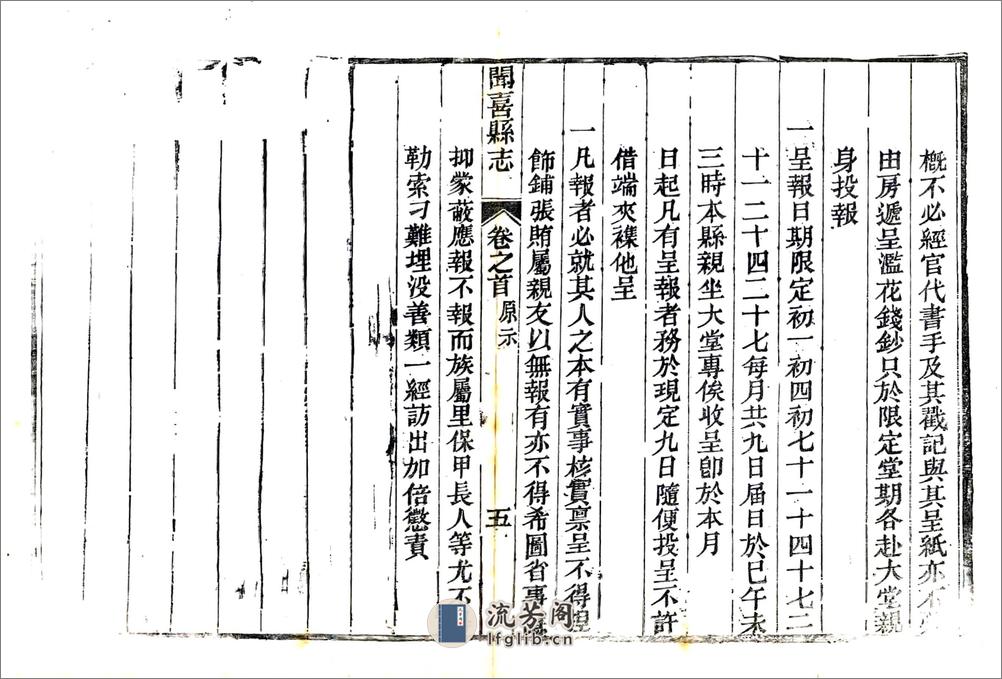 概不必經官代書手及其戳記與其呈紙亦不
由房遞呈濫花錢鈔只於限定堂期各赴大堂親
身投報
一呈報日期限定初一初四初七十一十四十七二
十一二十四二十七每月共九日届日於巳午未
三時本縣親坐大堂專俟收呈卽於本月
日起凡有呈報者務於現定九日隨便投呈不許
借端夾襍他呈
一凡報者必就其人之本有實事核實稟呈不得
飾鋪張賄屬親友以無報有亦不得希圖省事
聞喜縣志 卷之首 原示 五
抑蒙蔽應報不報而族屬里保甲長人等尤不
勒索刁難埋没善類一經訪出加倍懲責
流芳阁
lfglib.cn